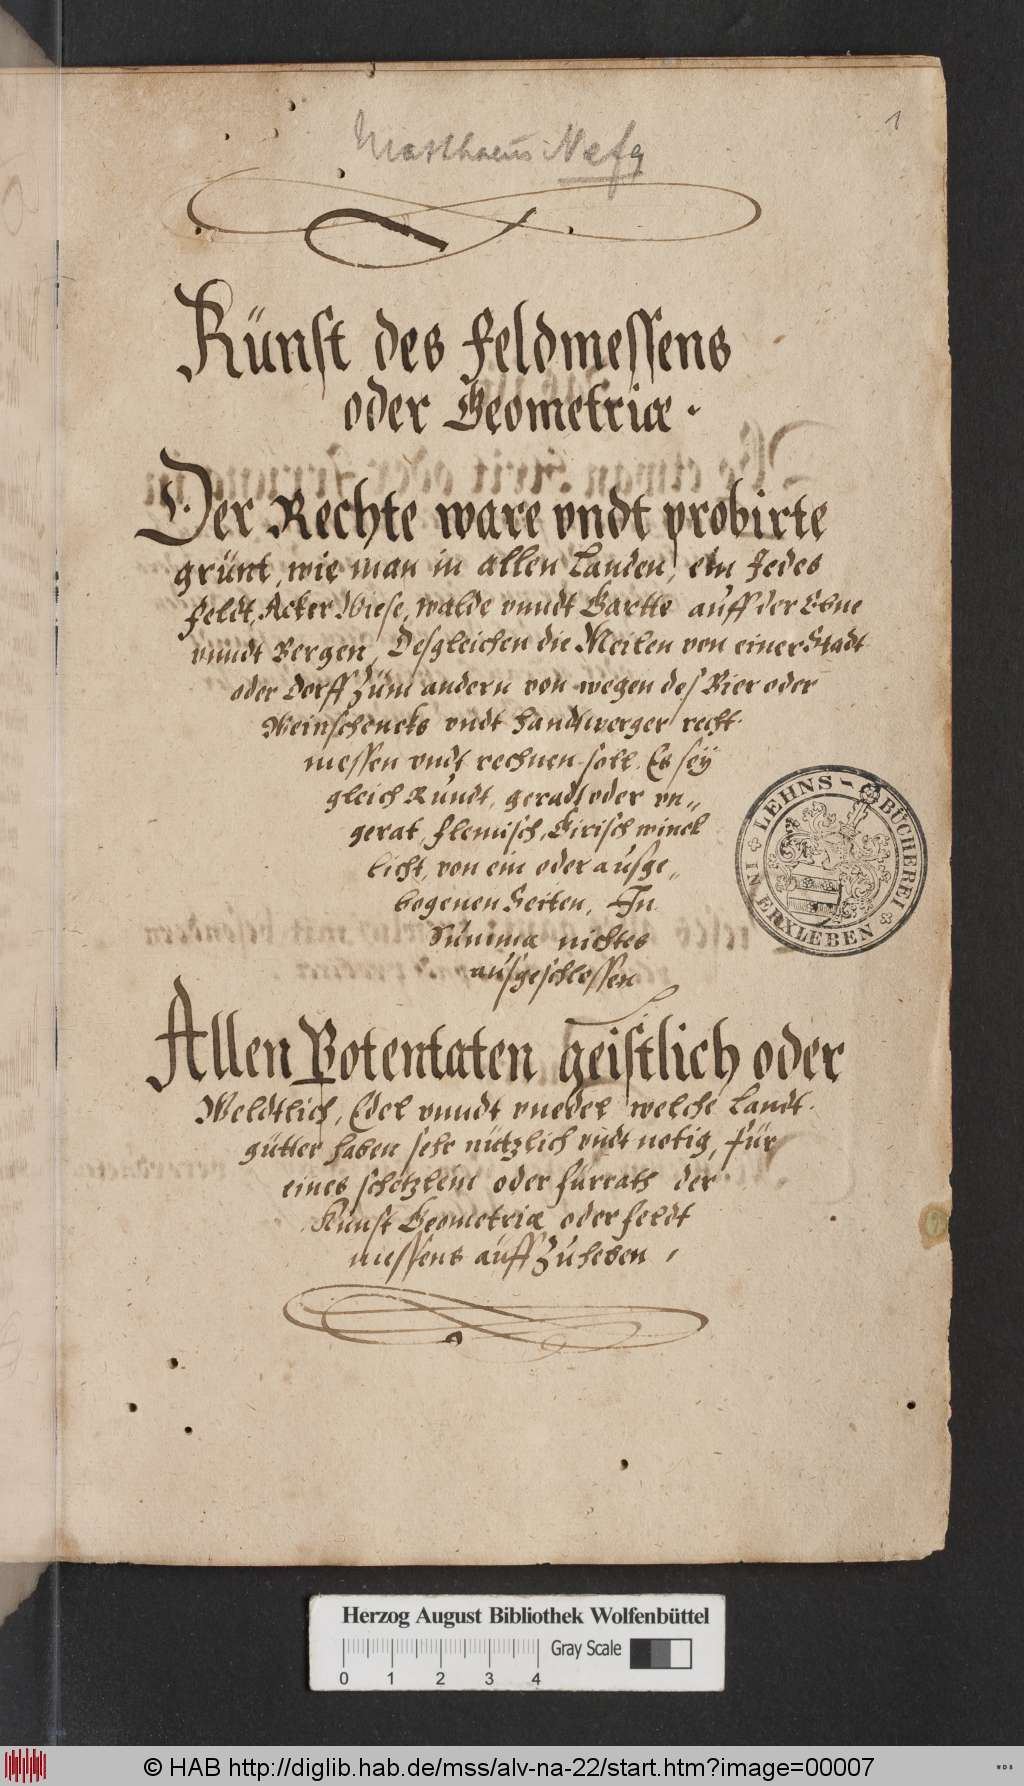 1
Matthaeus Nefe
Künst des feldmessens
oder Geometriæ.
Der Rechte ware vndt probirte
grünt, wie man in allen Landen, ein Jedes
feldt, Acker Wiese, walde vnndt Gartte auff der Ebne
vnndt Bergen, Desgleichen die Meilen von einer Stadt
oder dorff Züm andern von wegen des Bier oder
Weinschencks vndt handtwerger recht
messen vndt rechnen soll. Es sey
gleich Rundt, geradt oder vn,,
gerat, flemisch, Girisch winck
licht, von ein oder ausge,,
bogenen Seiten, In
Summa nichtes
ausgeschlossen
Allen Potentaten geistlich oder
Weldtlich, Edel vnndt vnedel welche Landt
gütter haben sehr nützlich vndt notig, für
eines schetzlein oder fürrath der
Künst Geometriæ oder feldt
messens auff Zu heben
LEHNS-BÜCHEREI IN ERXLEBEN
Herzog August Bibliothek Wolfenbüttel
Gray Scale
0 1 2 3 4
© HAB http://diglib.hab.de/mss/alv-na-22/start.htm?image=00007